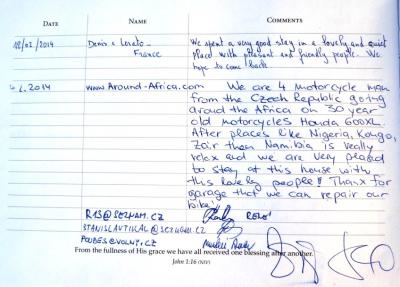 DATE NAME COMMENTS
18/01/2014 Denis & Loreto - We spent a very good stay in a lovely and quiet
France place with pleasant and friendly people. We
hope to come back
4.2.2014 www.Around-Africa.com We are 4 Motorcycle man
from the Czech Republic going
aroud the Africa on 30 year
old motorcycles Honda 600XL.
After places like Nigeria, Kongo,
Zair then Namibia is really
relax and we are very pleased
to stay at this house with
this lovely people!! Thanx for
garage that we can repair our
bike!
@SEZNAM.CZ
@SEZNAM.CZ
@VOLNY.CZ
From the fullness of His grace we have all received one blessing after another.
John 1:16 (NIV)